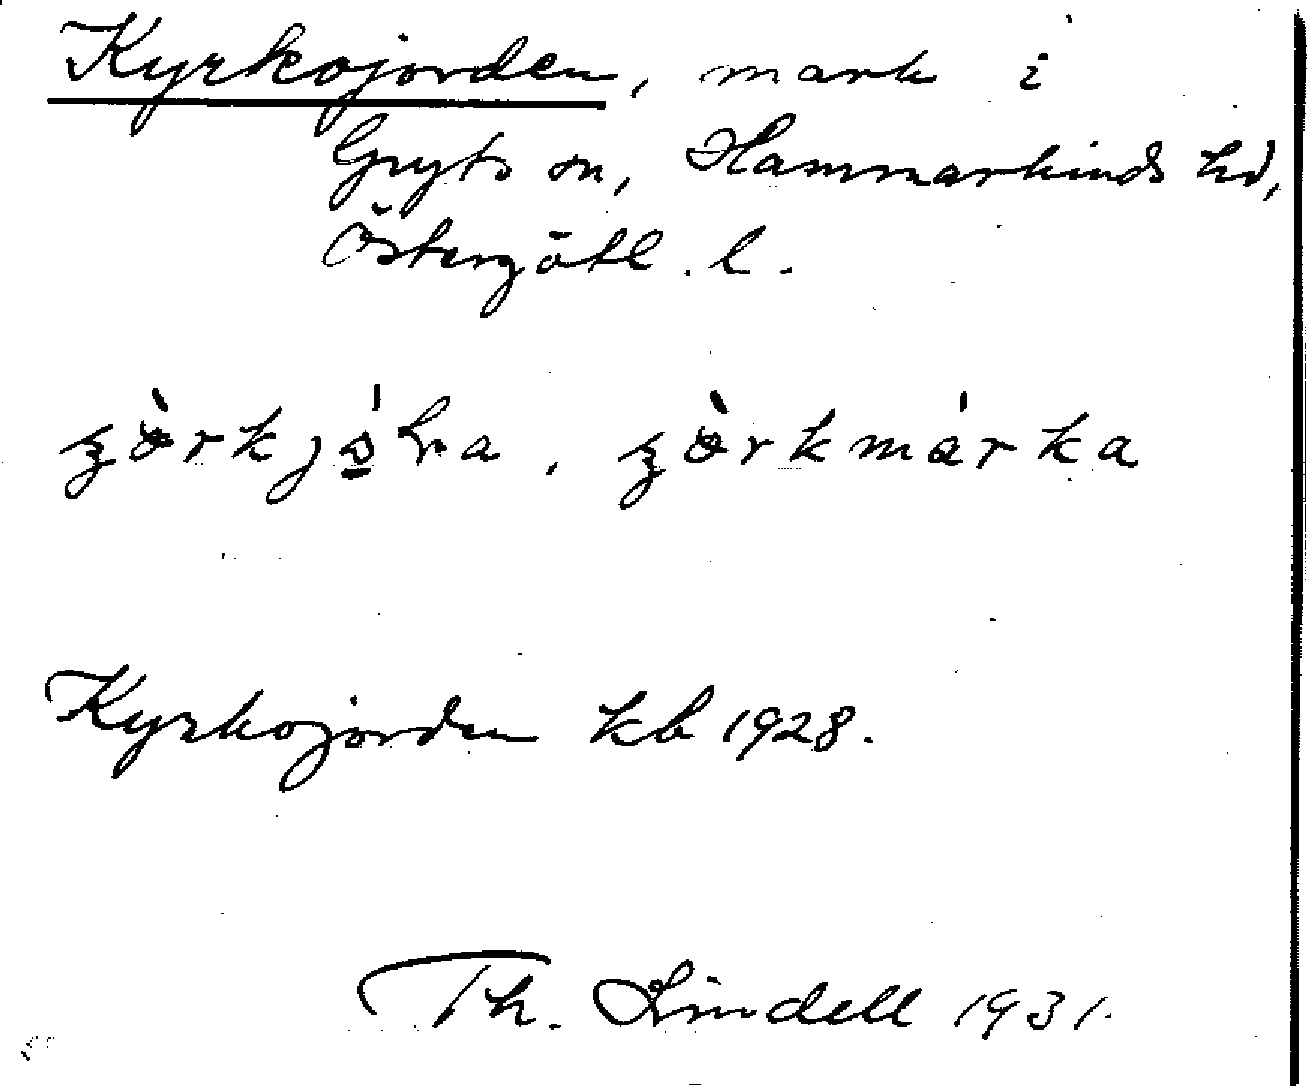 Kyrkojorden, mark i
Gryts sn, Hammarkinds hd,
Östergötl. l.
Kyrkojorden kb 1928.
Th. Lindell 1931.